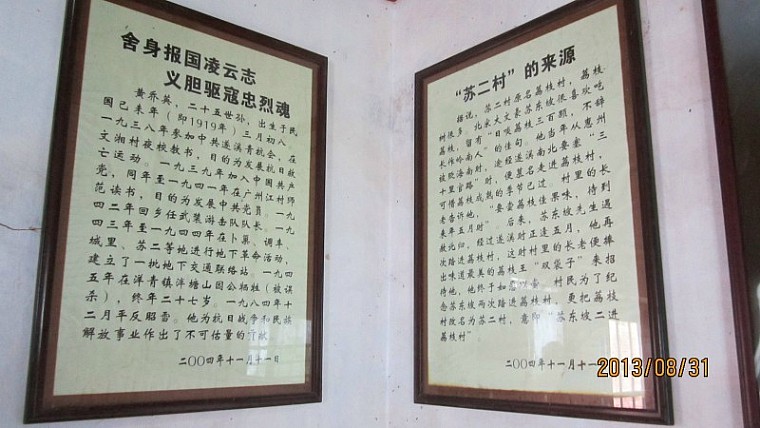 舍身报国凌云志
义胆驱寇忠烈魂
黄乔英，二十五世孙，出生于民
国已未年（即1919年）三月初八，
一九三八年参加中共遂溪青抗会，在
文湘村夜校教书，目的为发展抗日救
亡运动。一九三九年加入中国共产
党，同年至一九四一年在广州江村师
范读书，目的为发展中共党员。一九
四二年回乡任武装游击队队长。一九
四三年至一九四四年在卜巢、调丰、
城里、苏二等地进行地下革命活动，
建立了一批地下交通联络站。一九四
五年在洋青镇泮塘山因公牺牲（被误
杀），终年二十七岁。一九八四年十
二月平反昭雪。他为抗日战争和民族
解放事业作出了不可估量的贡献。
二〇〇四年十一月十一日
“苏二村”的来源
据说，苏二村原名荔枝村，荔枝
树很多，北宋大文豪苏东坡很喜欢吃
荔枝，留有“日啖荔枝三百颗，不辞
长作岭南人”的佳句。他当年从惠州
被贬海南时，途经遂溪南北要塞“三
十里官路”时，便慕名走进荔枝村，
可惜荔枝成熟的季节已过。村里的长
老告诉他，“要尝荔枝佳果味，待到
来年五月时”。后来，苏东坡先生遇
赦北归，经过遂溪时正逢五月，他再
次踏进荔枝村，这时村里的长老便捧
出味道最美的荔枝王“双袋子”来招
待他，他终于如愿
村民为了纪
念苏东坡两次踏进荔枝村，更把荔枝
村改名为苏二村，意即“苏东坡二进
荔枝村”
二〇〇四年十一月十一
2013/08/31